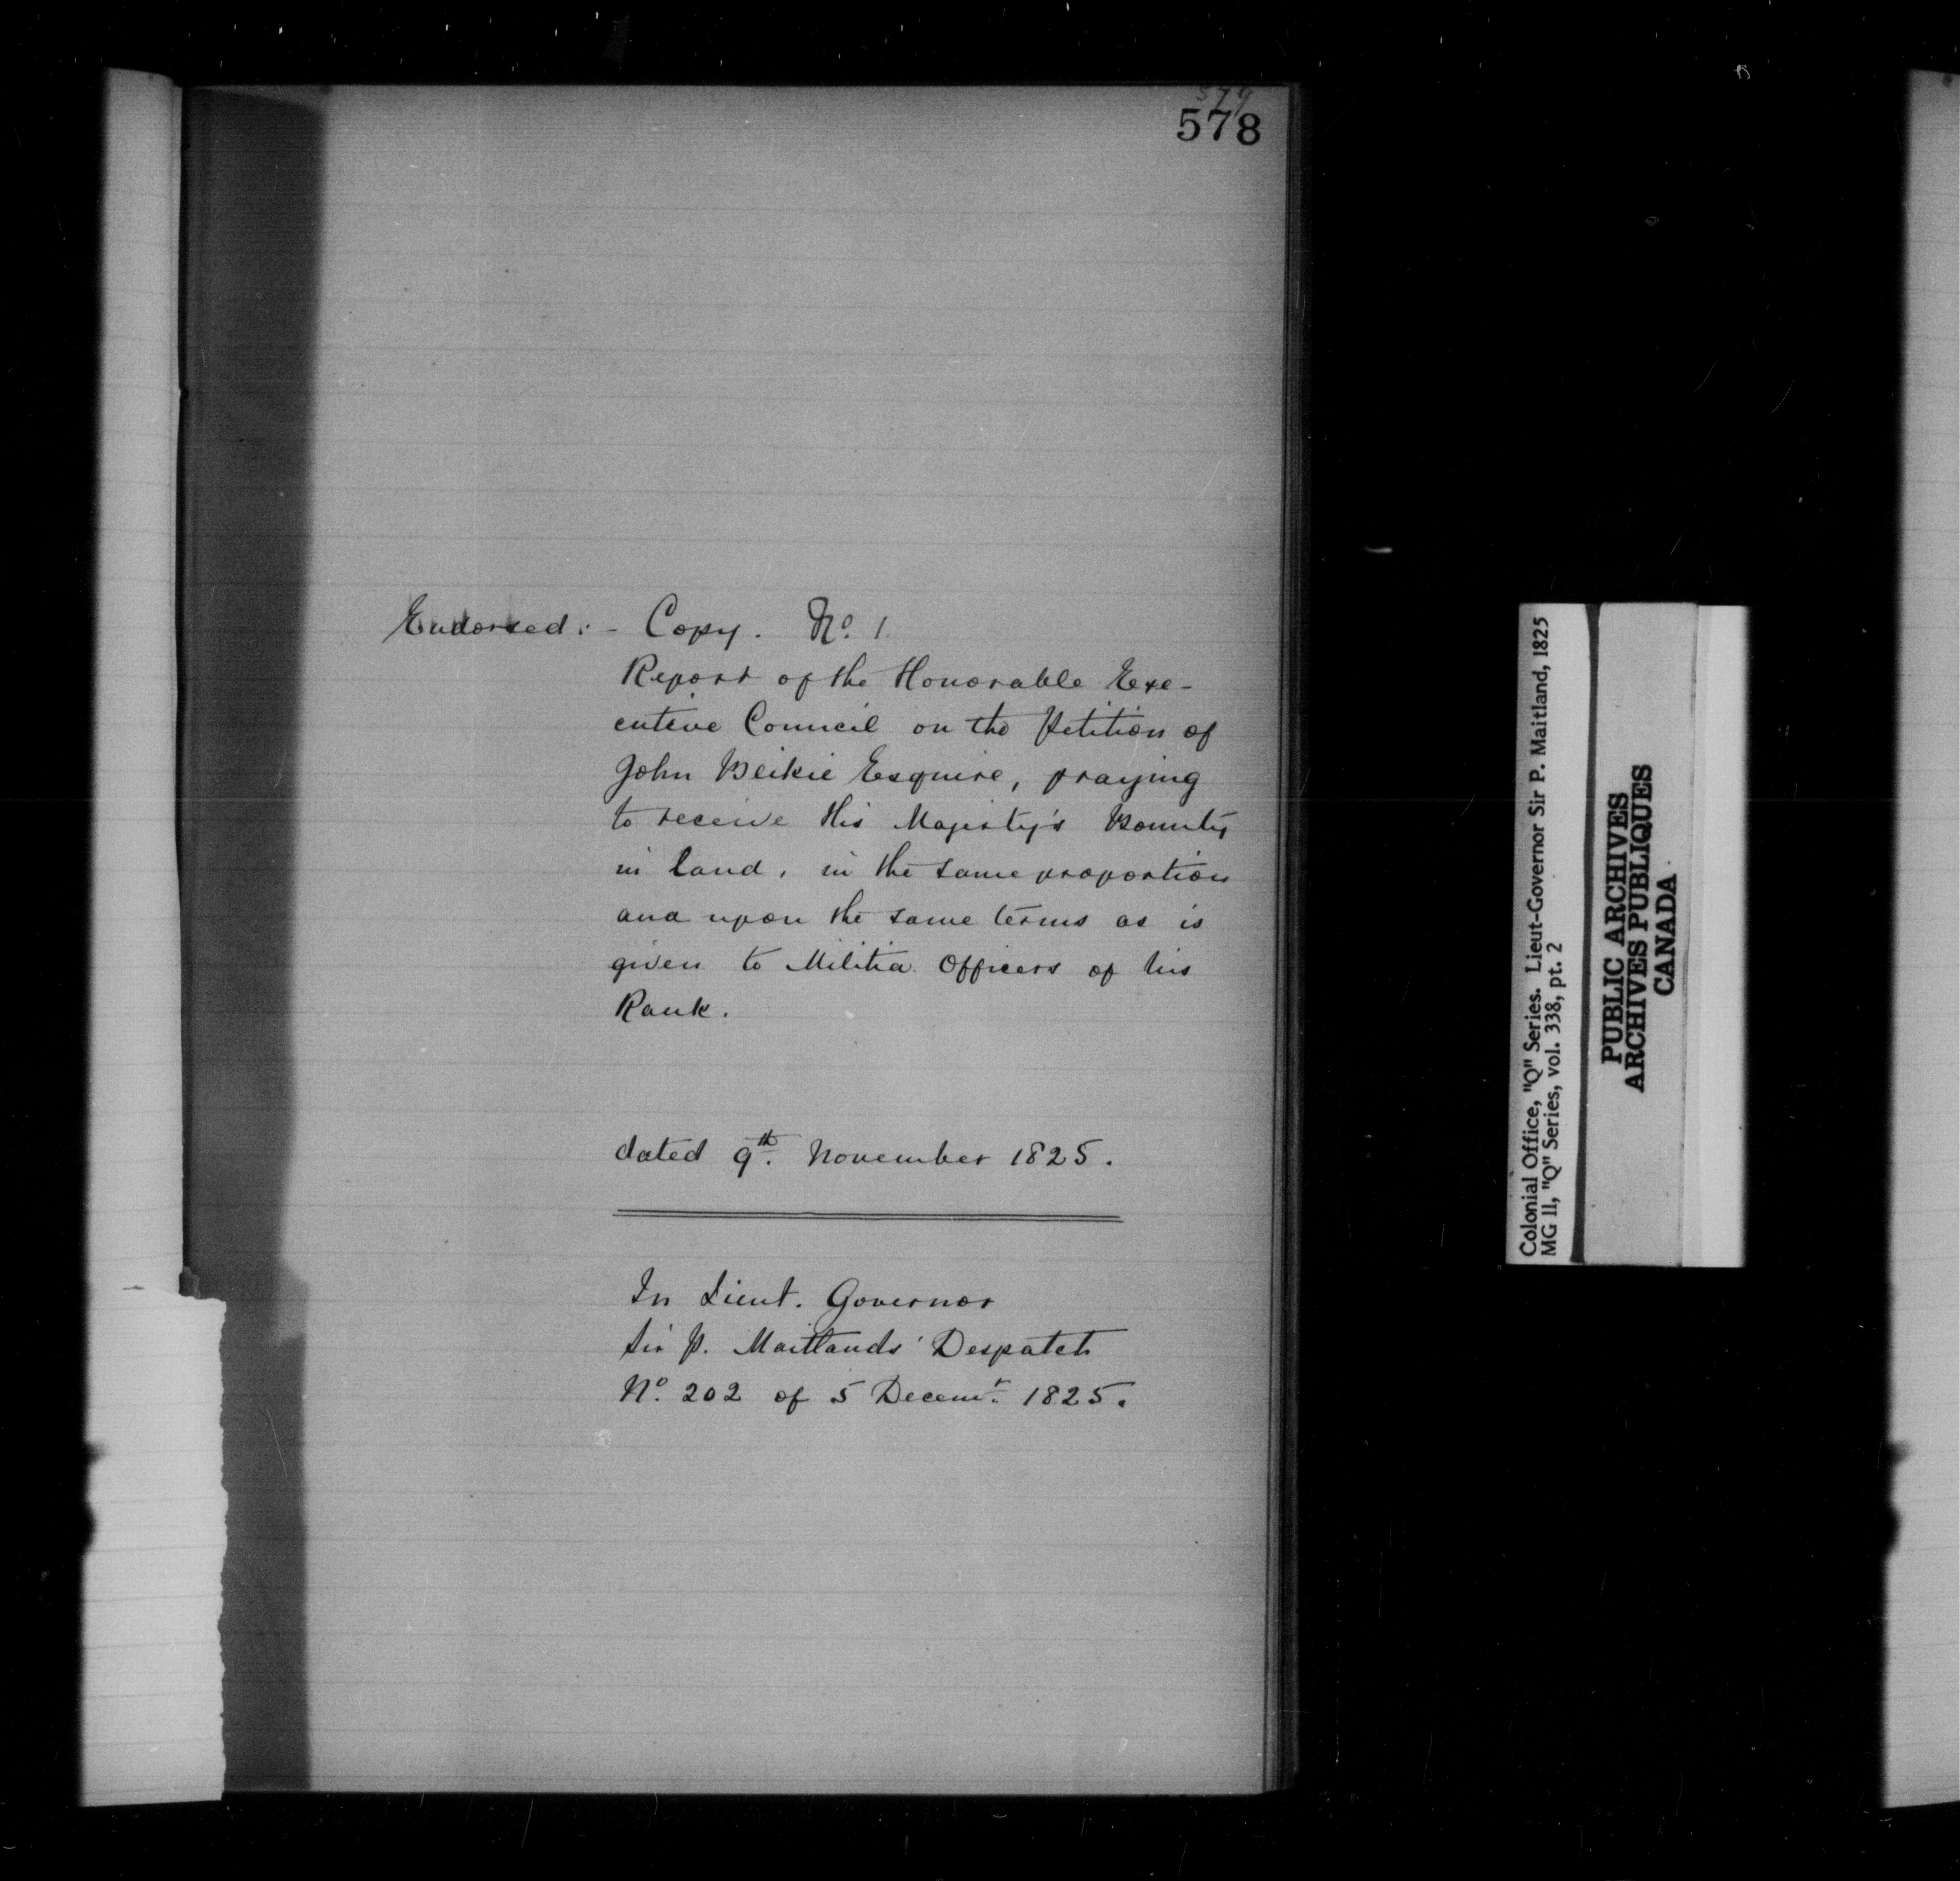 579
578
Endorsed:- Copy. No. 1.
Report of the Honorable Exe-
cutive Council on the Petition of
John Beikie Esquire, praying
to receive His Majesty's Bounty
in land, in the same proportion
and upon the same terms as is
given to Militia Officers of his
Rank.
dated 9th. November 1825.
In Lieut. Governor
Sir P. Maitlands' Despatch
No. 202 of 5 Decemr. 1825.
Colonial Office, "Q" Series. Lieut-Governor Sir P. Maitland, 1825
MG 11, "Q" Series, vol. 338, pt. 2
PUBLIC ARCHIVES
ARCHIVES PUBLIQUES
CANADA